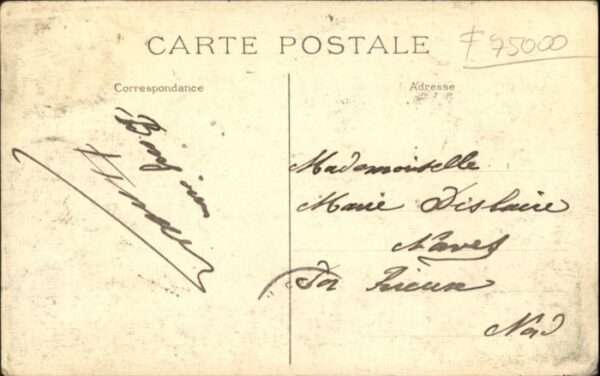 CARTE POSTALE
75000
Correspondance
Adresse
Bonjour
Mademoiselle
Marie Dislaire
Naves
Par Rieux
Nord